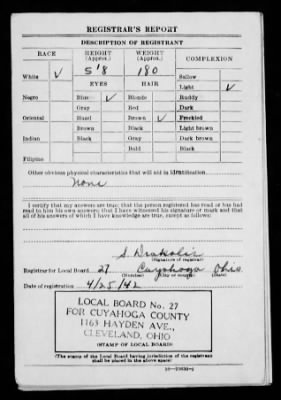 REGISTRAR'S REPORT
DESCRIPTION OF REGISTRANT
RACE HEIGHT (Approx.) WEIGHT (Approx.) COMPLEXION
White ✓ 5'8 180 Sallow
EYES HAIR Light ✓
Negro Blue ✓ Blonde Ruddy
Gray Red Dark
Oriental Hazel Brown ✓ Freckled
Brown Black Light brown
Indian Black Gray Dark brown
Bald Black
Filipino
Other obvious physical characteristics that will aid in identification
None
I certify that my answers are true; that the person registered has read or has had
read to him his own answers; that I have witnessed his signature or mark and that
all of his answers of which I have knowledge are true, except as follows:
S.
(Signature of registrar)
Registrar for Local Board 27 Cuyahoga Ohio
(Number) (City or county) (State)
Date of registration 4/25/42
LOCAL BOARD No. 27
FOR CUYAHOGA COUNTY
1163 HAYDEN AVE.,
CLEVELAND, OHIO
(STAMP OF LOCAL BOARD)
(The stamp of the Local Board having jurisdiction of the registrant
shall be placed in the above space.)